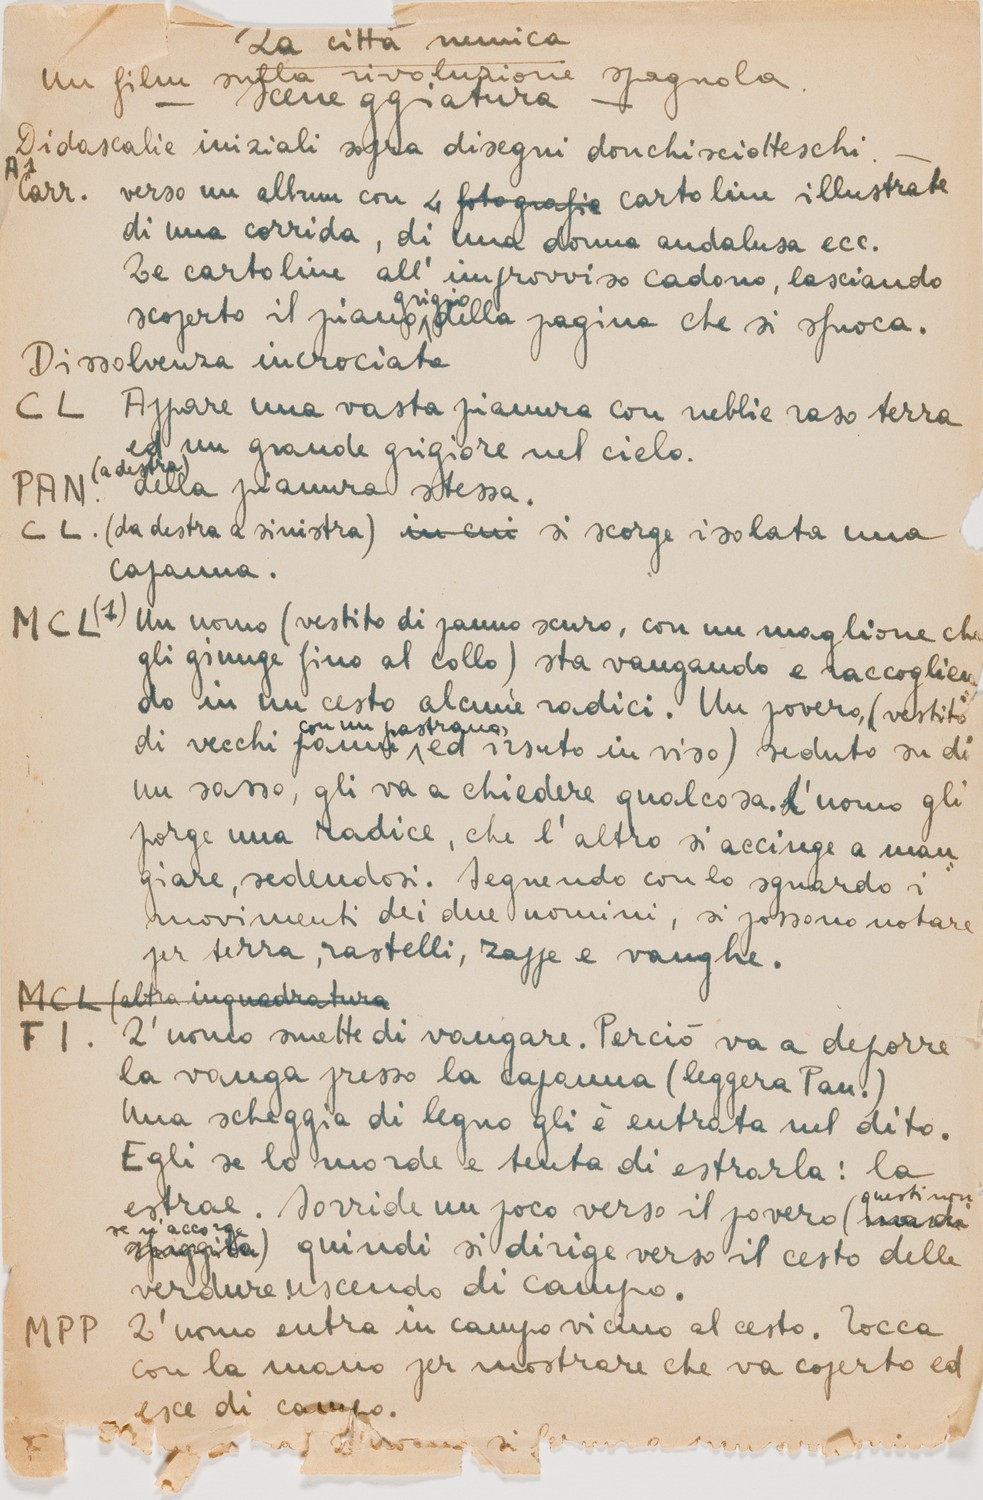 La città nemica
Un film sulla rivoluzione spagnola.
— Sceneggiatura —
Didascalie iniziali sopra disegni donchisciotteschi. —
A1
Carr. verso un album con 4 fotografie cartoline illustrate
di una corrida, di una donna andalusa ecc.
Le cartoline all'improvviso cadono, lasciando
grigio
scoperto il piano, della pagina che si sfuoca.
Dissolvenza incrociata
CL Appare una vasta pianura con nebbie raso terra
ed un grande grigiore nel cielo.
(a destra)
PAN. della pianura stessa.
CL. (da destra a sinistra) in cui si scorge isolata una
capanna.
MCL (1) Un uomo (vestito di panno scuro, con un maglione che
gli giunge fino al collo) sta vangando e raccoglien
do in un cesto alcune radici. Un povero, (vestito
con un pastrano,
di vecchi panni, ed irsuto in viso) seduto su di
un sasso, gli va a chiedere qualcosa. L'uomo gli
porge una radice, che l'altro si accinge a man
giare, sedendosi. Seguendo con lo sguardo i
movimenti dei due uomini, si possono notare
per terra, rastelli, zappe e vanghe.
MCL (altra inquadratura
F I. L'uomo smette di vangare. Perciò va a deporre
la vanga presso la capanna (leggera Pan.)
Una scheggia di legno gli è entrata nel dito.
Egli se lo morde e tenta di estrarla: la
estrae. Sorride un poco verso il povero (
questi non
se n'accorge
) quindi si dirige verso il cesto delle
verdure uscendo di campo.
MPP L'uomo entra in campo vicino al cesto. Tocca
con la mano per mostrare che va coperto ed
esce di campo.
si ferma